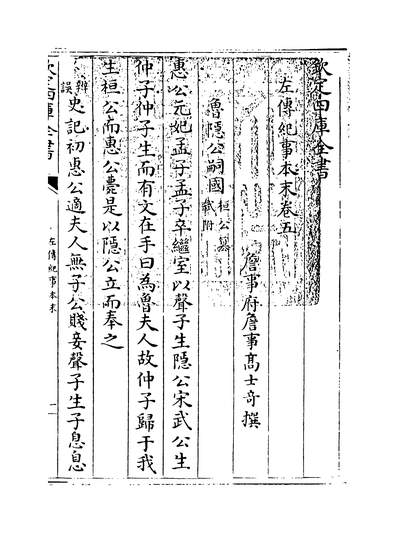 欽定四庫全書
左傳紀事本末卷五
詹事府詹事高士奇撰
魯隱公嗣國桓公簒弑附
惠公元妃孟子孟子卒繼室以聲子生隱公宋武公生
仲子仲子生而有文在手曰為魯夫人故仲子歸于我
生桓公而惠公薨是以隱公立而奉之
辨誤史記初惠公適夫人無子公賤妾聲子生子息息
欽定四庫全書
左傳紀事本末
一